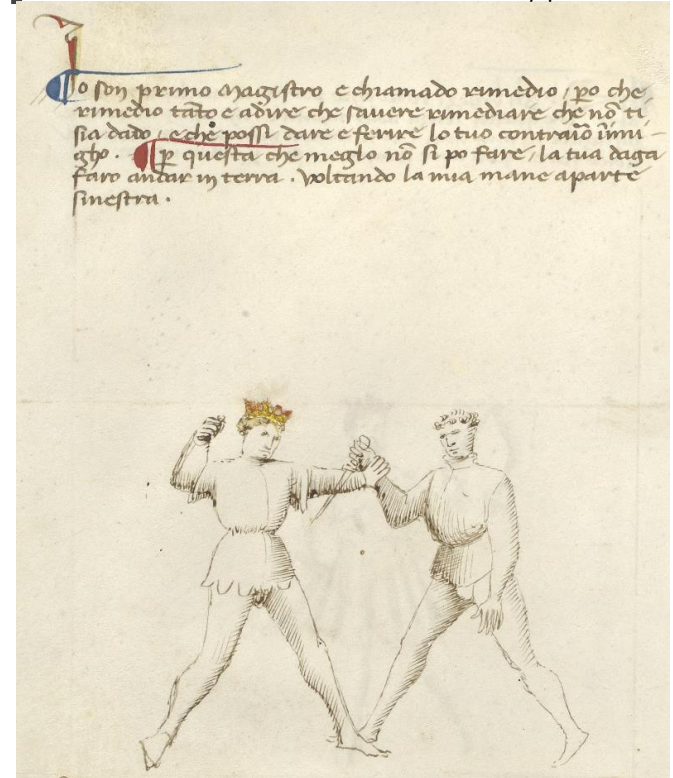 Io son primo magistro e chiamado rimedio, ꝑo che
rimedio tãto e a dire che savere rimediare che nõ ti
sia dado, e che possi dare e ferire lo tuo contraiõ inimi-
gho. ꝑ questa che meglo nõ si po fare, la tua daga
faro andar in terra. voltando la mia mane a parte
sinestra.